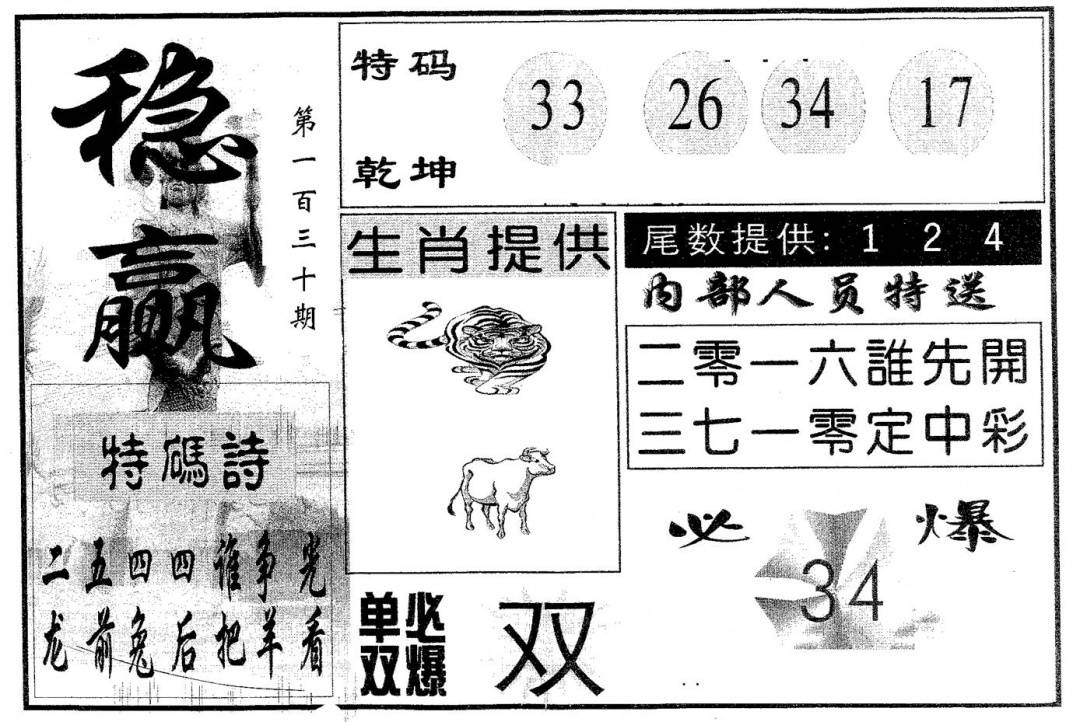 稳赢
第一百三十期
特码诗
二五四四谁争光
龙前兔后把羊看
特码
乾坤
33 26 34 17
生肖提供
尾数提供: 1 2 4
内部人员特送
二零一六誰先開
三七一零定中彩
必爆
34
单双必爆
双